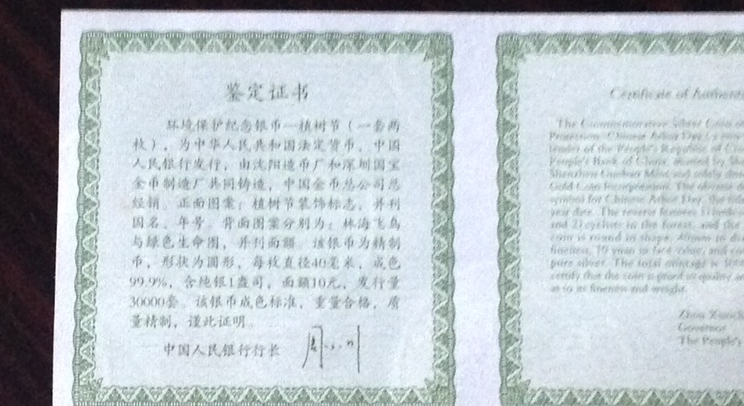 鉴定证书
环境保护纪念银币—植树节（一套两
枚），为中华人民共和国法定货币，中国
人民银行发行，由沈阳造币厂和深圳国宝
金币制造厂共同铸造，中国金币总公司总
经销。正面图案：植树节装饰标志，并刊
国名、年号。背面图案分别为：林海飞鸟
与绿色生命图，并刊面额。该银币为精制
币，形状为圆形，每枚直径40毫米，成色
99.9%，含纯银1盎司，面额10元，发行量
30000套。该银币成色标准，重量合格，质
量精制，谨此证明。
中国人民银行行长
Certificate of
The Commemorative Silver Coin
Chinese Arbor Day
of the People's Republic of
People's Bank of China, minted by
Shenzhen Guobao Mint and solely
Gold Coin Incorporation. The obverse
symbol for Chinese Arbor Day, the
year date. The reverse features
and 2) in the forest, and the
coin is round in shape, 40mm in
fineness, 10 yuan in face value, and
pure silver. The total mintage is
certify that the coin is proof in quality
as to its fineness and weight.
Zhou
Governor
The People's